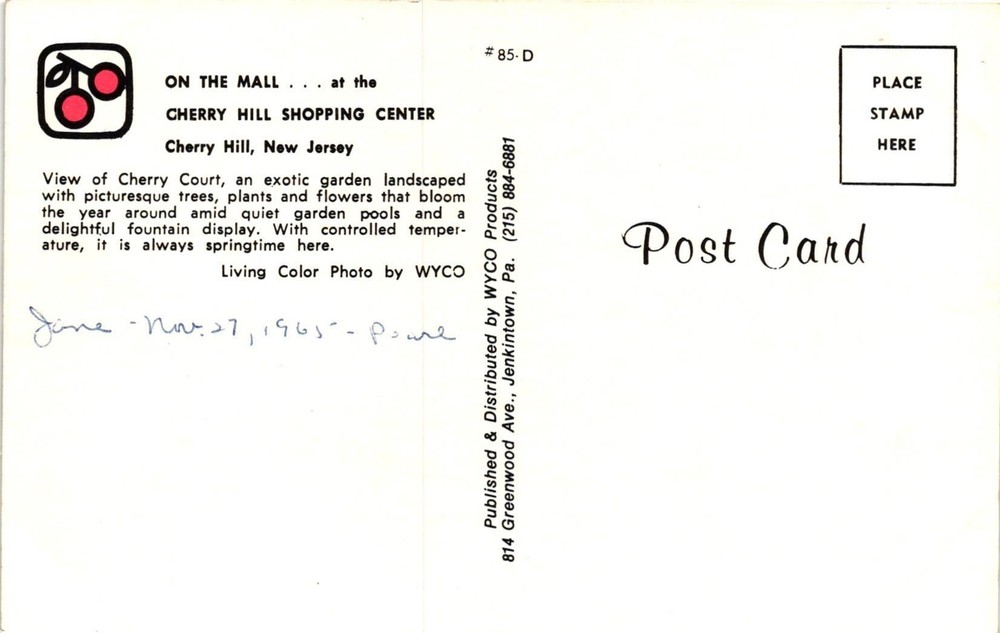 ON THE MALL . . . at the
CHERRY HILL SHOPPING CENTER
Cherry Hill, New Jersey
View of Cherry Court, an exotic garden landscaped
with picturesque trees, plants and flowers that bloom
the year around amid quiet garden pools and a
delightful fountain display. With controlled temper-
ature, it is always springtime here.
Living Color Photo by WYCO
Jane - Nov. 27, 1965 -
# 85-D
Published & Distributed by WYCO Products
814 Greenwood Ave., Jenkintown, Pa. (215) 884-6881
PLACE
STAMP
HERE
Post Card